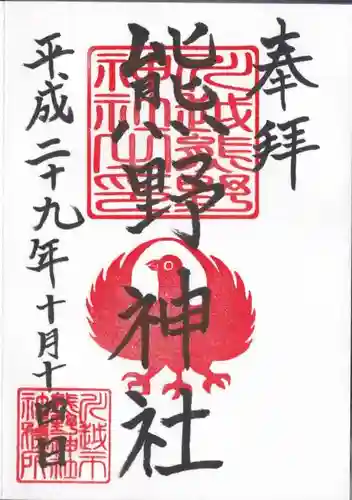 奉拝
川越熊野
神社之印
熊野神社
平成二十九年十月十四日
川越市
熊野神社
神社務所